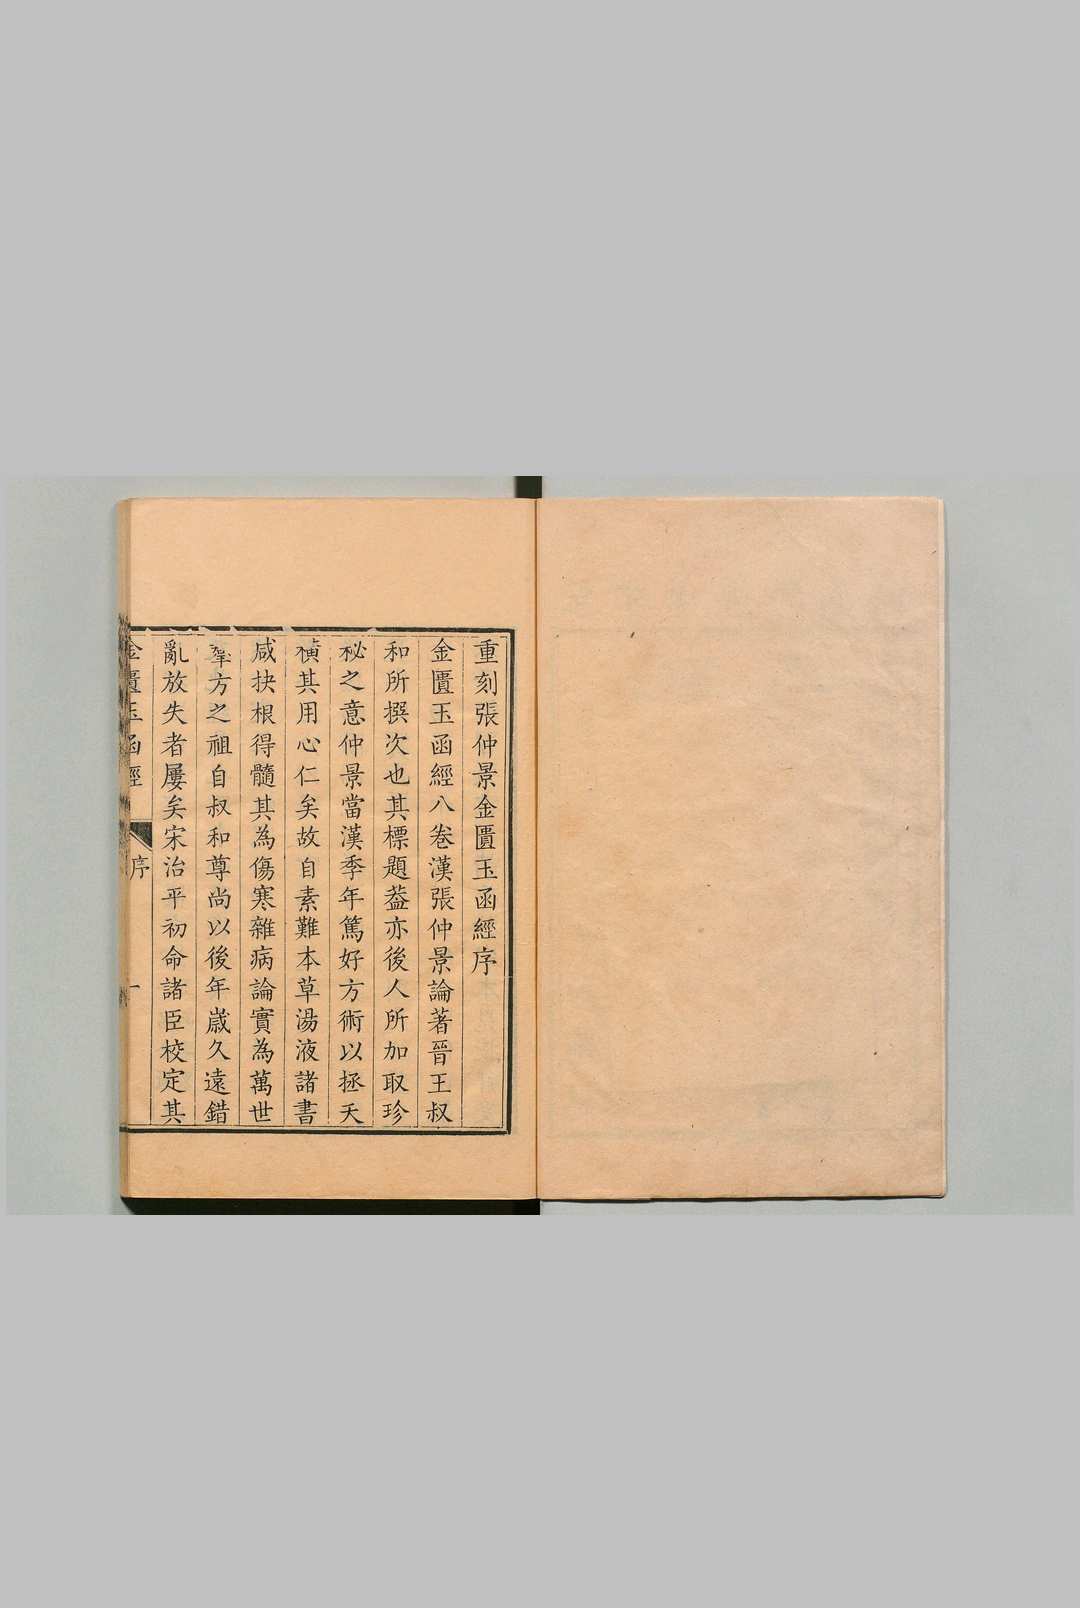 重刻張仲景金匱玉函經序
金匱玉函經八卷漢張仲景論著晉王叔
和所撰次也其標題葢亦後人所加取珍
祕之意仲景當漢季年篤好方術以拯夭
橫其用心仁矣故自素難本草湯液諸書
咸抉根得髓其為傷寒雜病論實為萬世
羣方之祖自叔和尊尚以後年歲久遠錯
亂放失者屢矣宋治平初命諸臣校定其
金匱玉函經 序 一